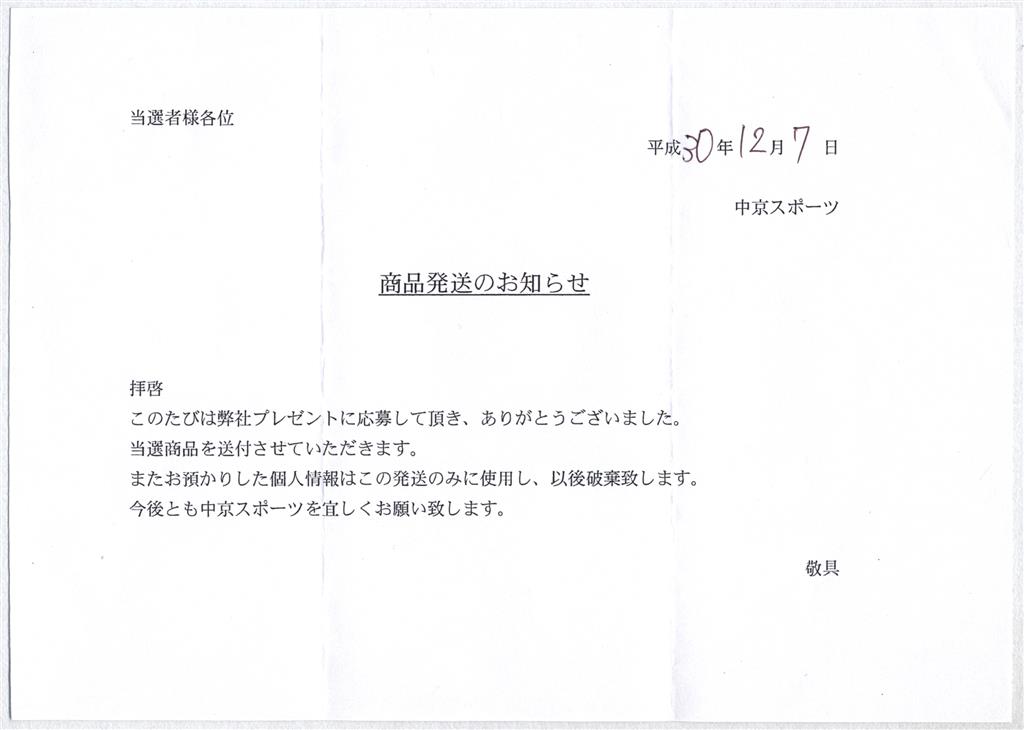 当選者様各位
平成30年12月7日
中京スポーツ
商品発送のお知らせ
拝啓
このたびは弊社プレゼントに応募して頂き、ありがとうございました。
当選商品を送付させていただきます。
またお預かりした個人情報はこの発送のみに使用し、以後破棄致します。
今後とも中京スポーツを宜しくお願い致します。
敬具